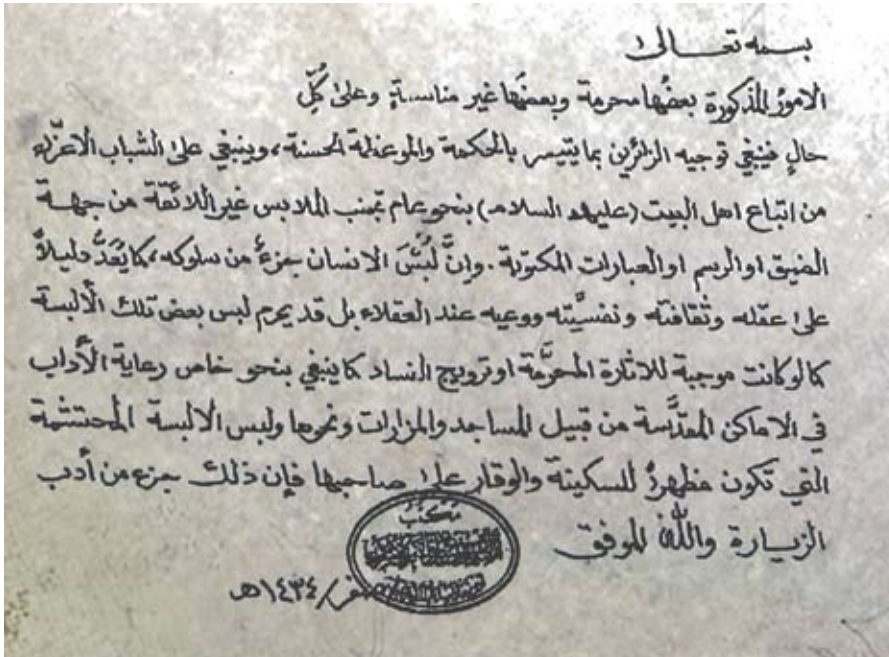 بسمه تعالى
الامورُ المذكورة بعضُها محرمة وبعضُها غير مناسبةٍ وعلىٰ كُلِّ
حالٍ فينبغي توجيه الزائرين بما يتيسر بالحكمة والموعظة الحسنة، وينبغي علىٰ الشباب الاعزّاء
من اتباع اهل البيت (عليهم السلام) بنحو عام تجنب الملابس غير اللائقة من جهة
الضيق او الرسم او العبارات المكتوبة. وانَّ لُبْسَ الانسان جزءٌ من سلوكه، كما يُعَدُّ دليلاً
علىٰ عقله وثقافته ونفسيَّته ووعيه عند العقلاء بل قد يحرم لبس بعض تلك الألبسة
كما لو كانت موجبة للاثارة المحرَّمة او ترويج الفساد كما ينبغي بنحو خاص رعاية الآداب
في الاماكن المقدَّسة من قبيل المساجد والمزارات ونحوها ولبس الالبسة المحتشمة
التي تكون مظهراً للسكينة والوقار علىٰ صاحبها فإن ذلك جزء من أدب
الزيارة والله الموفق
مكتب
صفر/١٤٣٤هـ